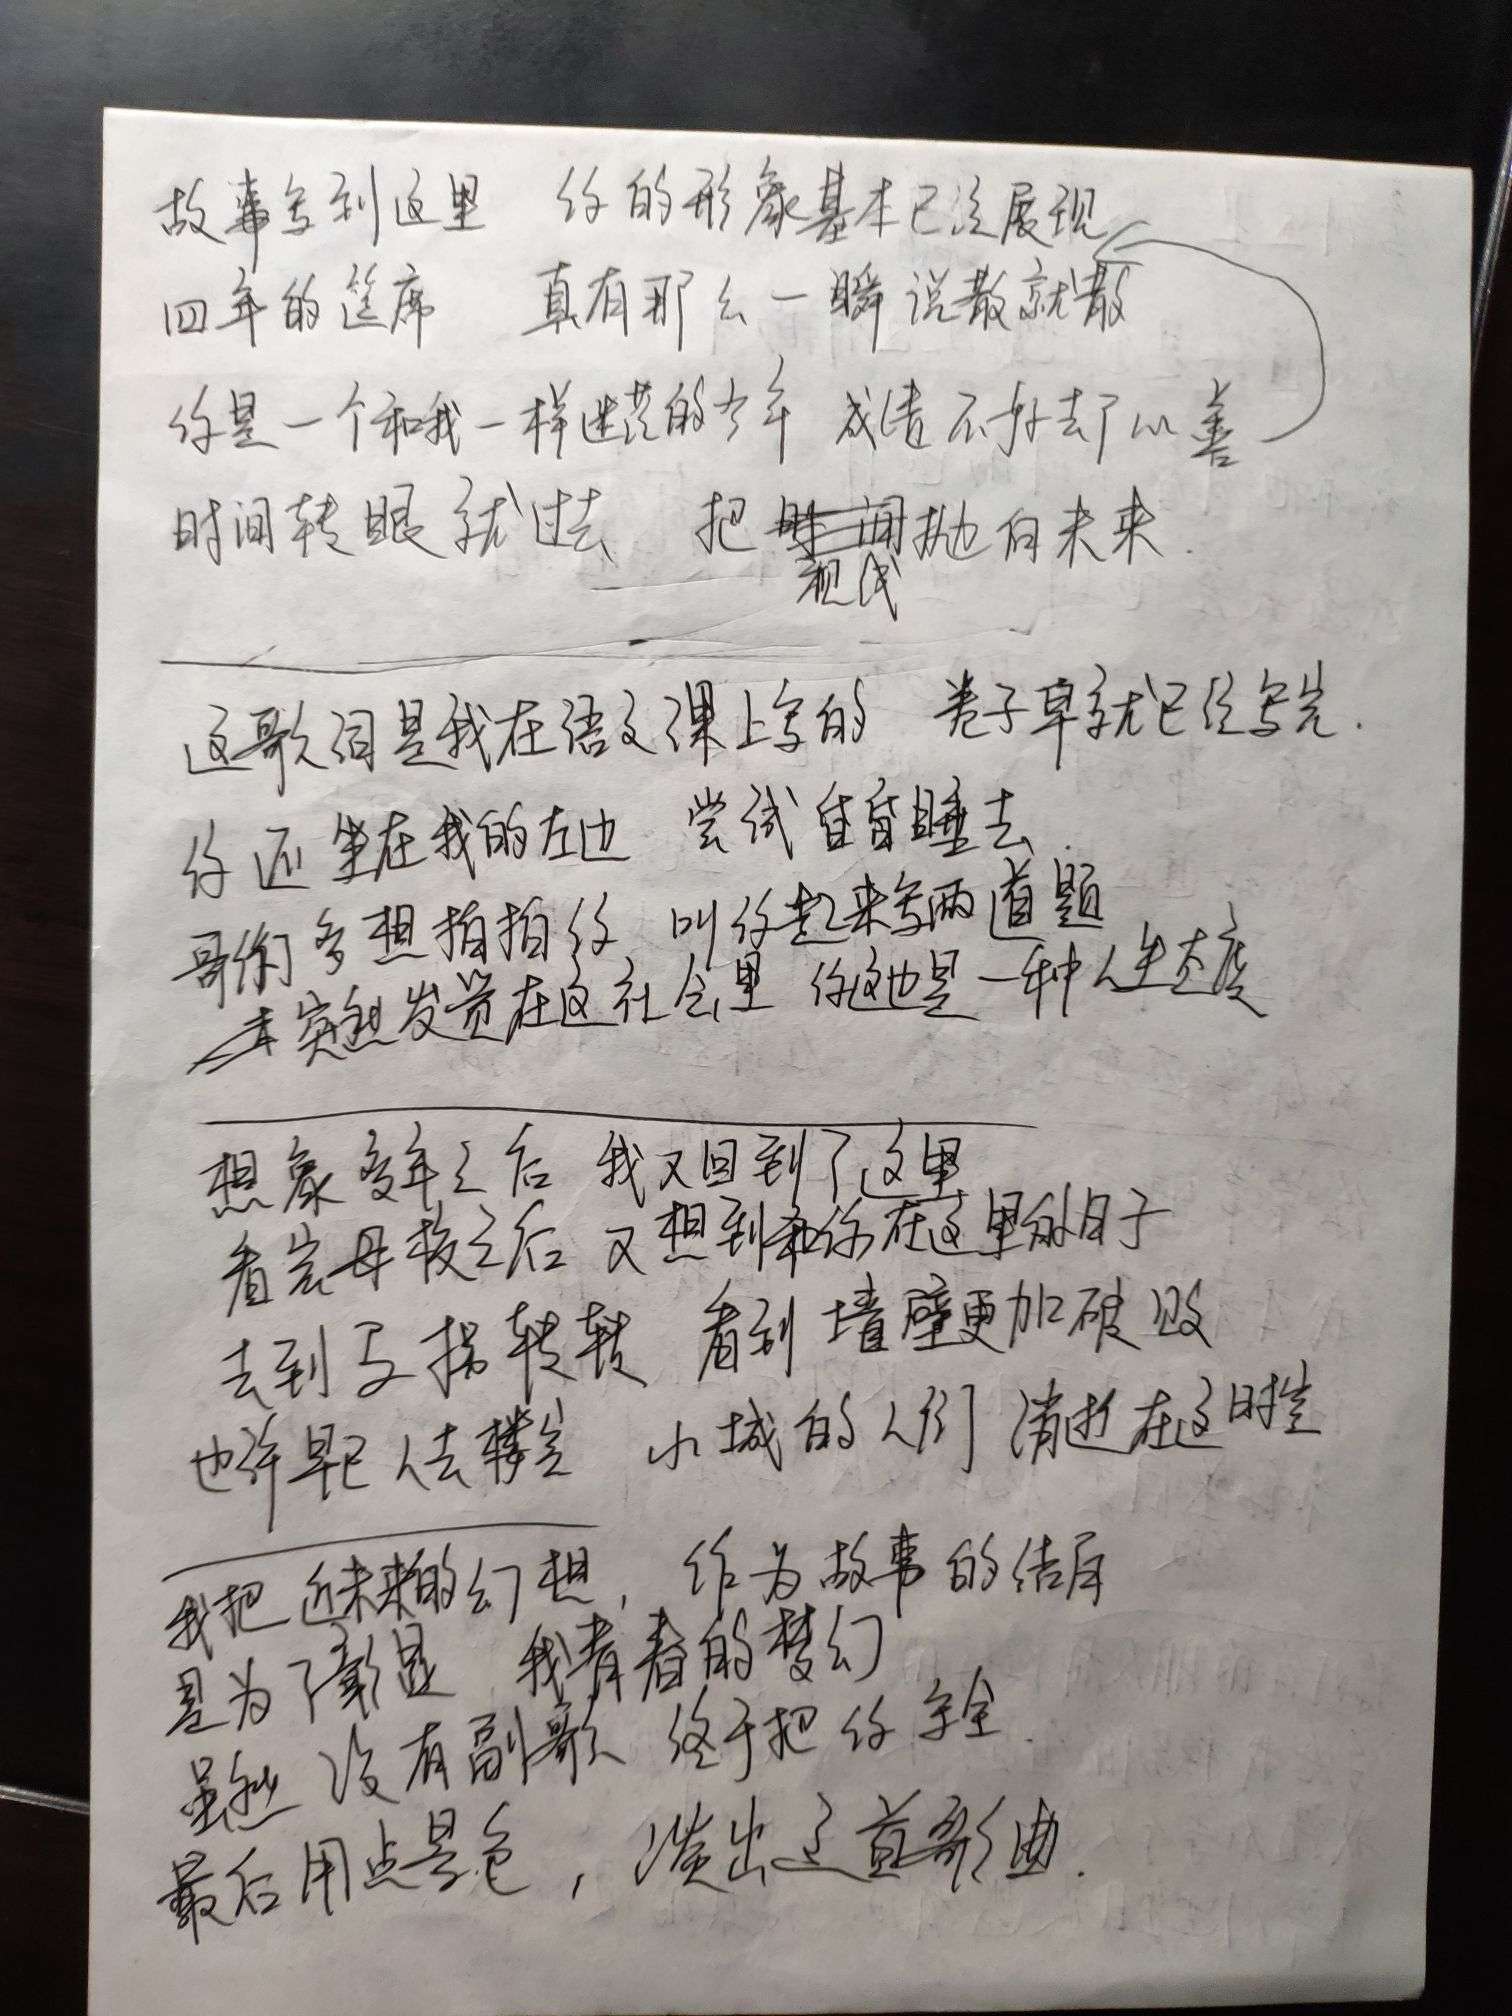 故事写到这里 你的形象基本已经展现
四年的筵席 真有那么一瞬说散就散
你是一个和我一样迷茫的少年 成绩不好去了以善
时间转眼就过去 把时间抛向未来.
视线
这歌词是我在语文课上写的 卷子早就已经写完.
你还坐在我的左边 尝试昏昏睡去.
哥们多想拍拍你 叫你起来写两道题
突然发觉在这社会里 你这也是一种人生态度
想象多年之后 我又回到了这里
看完母校之后 又想到和你在这里的日子
去到 转转 看到墙壁更加破败
也许早已人去楼空 小城的人们 消逝在这时空
我把近未来的幻想, 作为故事的结尾
是为了彰显 我青春的梦幻
虽然 没有副歌 终于把你写全.
最后用点景色, 淡出这首歌曲.